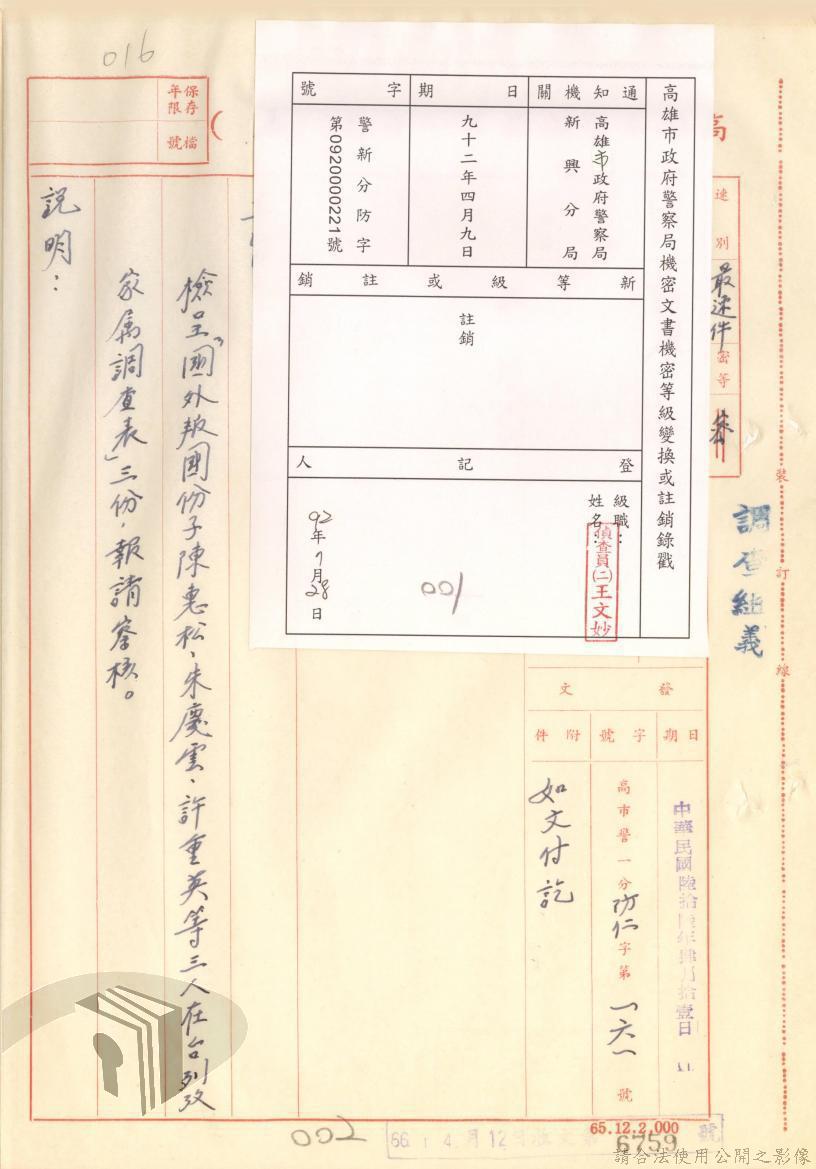 016
高雄市政府警察局機密文書機密等級變換或註銷錄戳
通知機關
高雄市政府警察局
新興分局
日期
九十二年四月九日
字號
警新分防字
第0920000221號
新等級或註銷
註銷
登記人
級職：
姓名：
偵查員(二)王文妙
001
92年7月28日
高
速別
最速件
密等
裝訂線
調查組義
保存年限
檔號
發文
日期
中華民國陸拾陸年肆月拾壹日
字號
高市警一分防仁字第一六一號
附件
如文付訖
檢呈「國外叛國份子陳惠松、朱慶雲、許重英等三人在台列攷
家属調查表」三份，報請察核。
說明：
002
66.4.月12日收文第6759號
65.12.2,000
請合法使用公開之影像